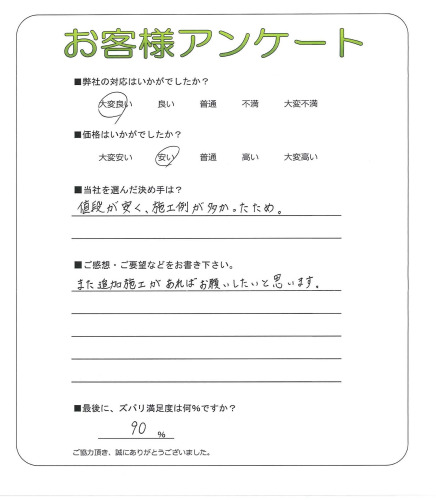 お客様アンケート
■弊社の対応はいかがでしたか？
大変良い 良い 普通 不満 大変不満
■価格はいかがでしたか？
大変安い 安い 普通 高い 大変高い
■当社を選んだ決め手は？
値段が安く、施工例が多かったため。
■ご感想・ご要望などをお書き下さい。
また追加施工があればお願いしたいと思います。
■最後に、ズバリ満足度は何％ですか？
90 ％
ご協力頂き、誠にありがとうございました。